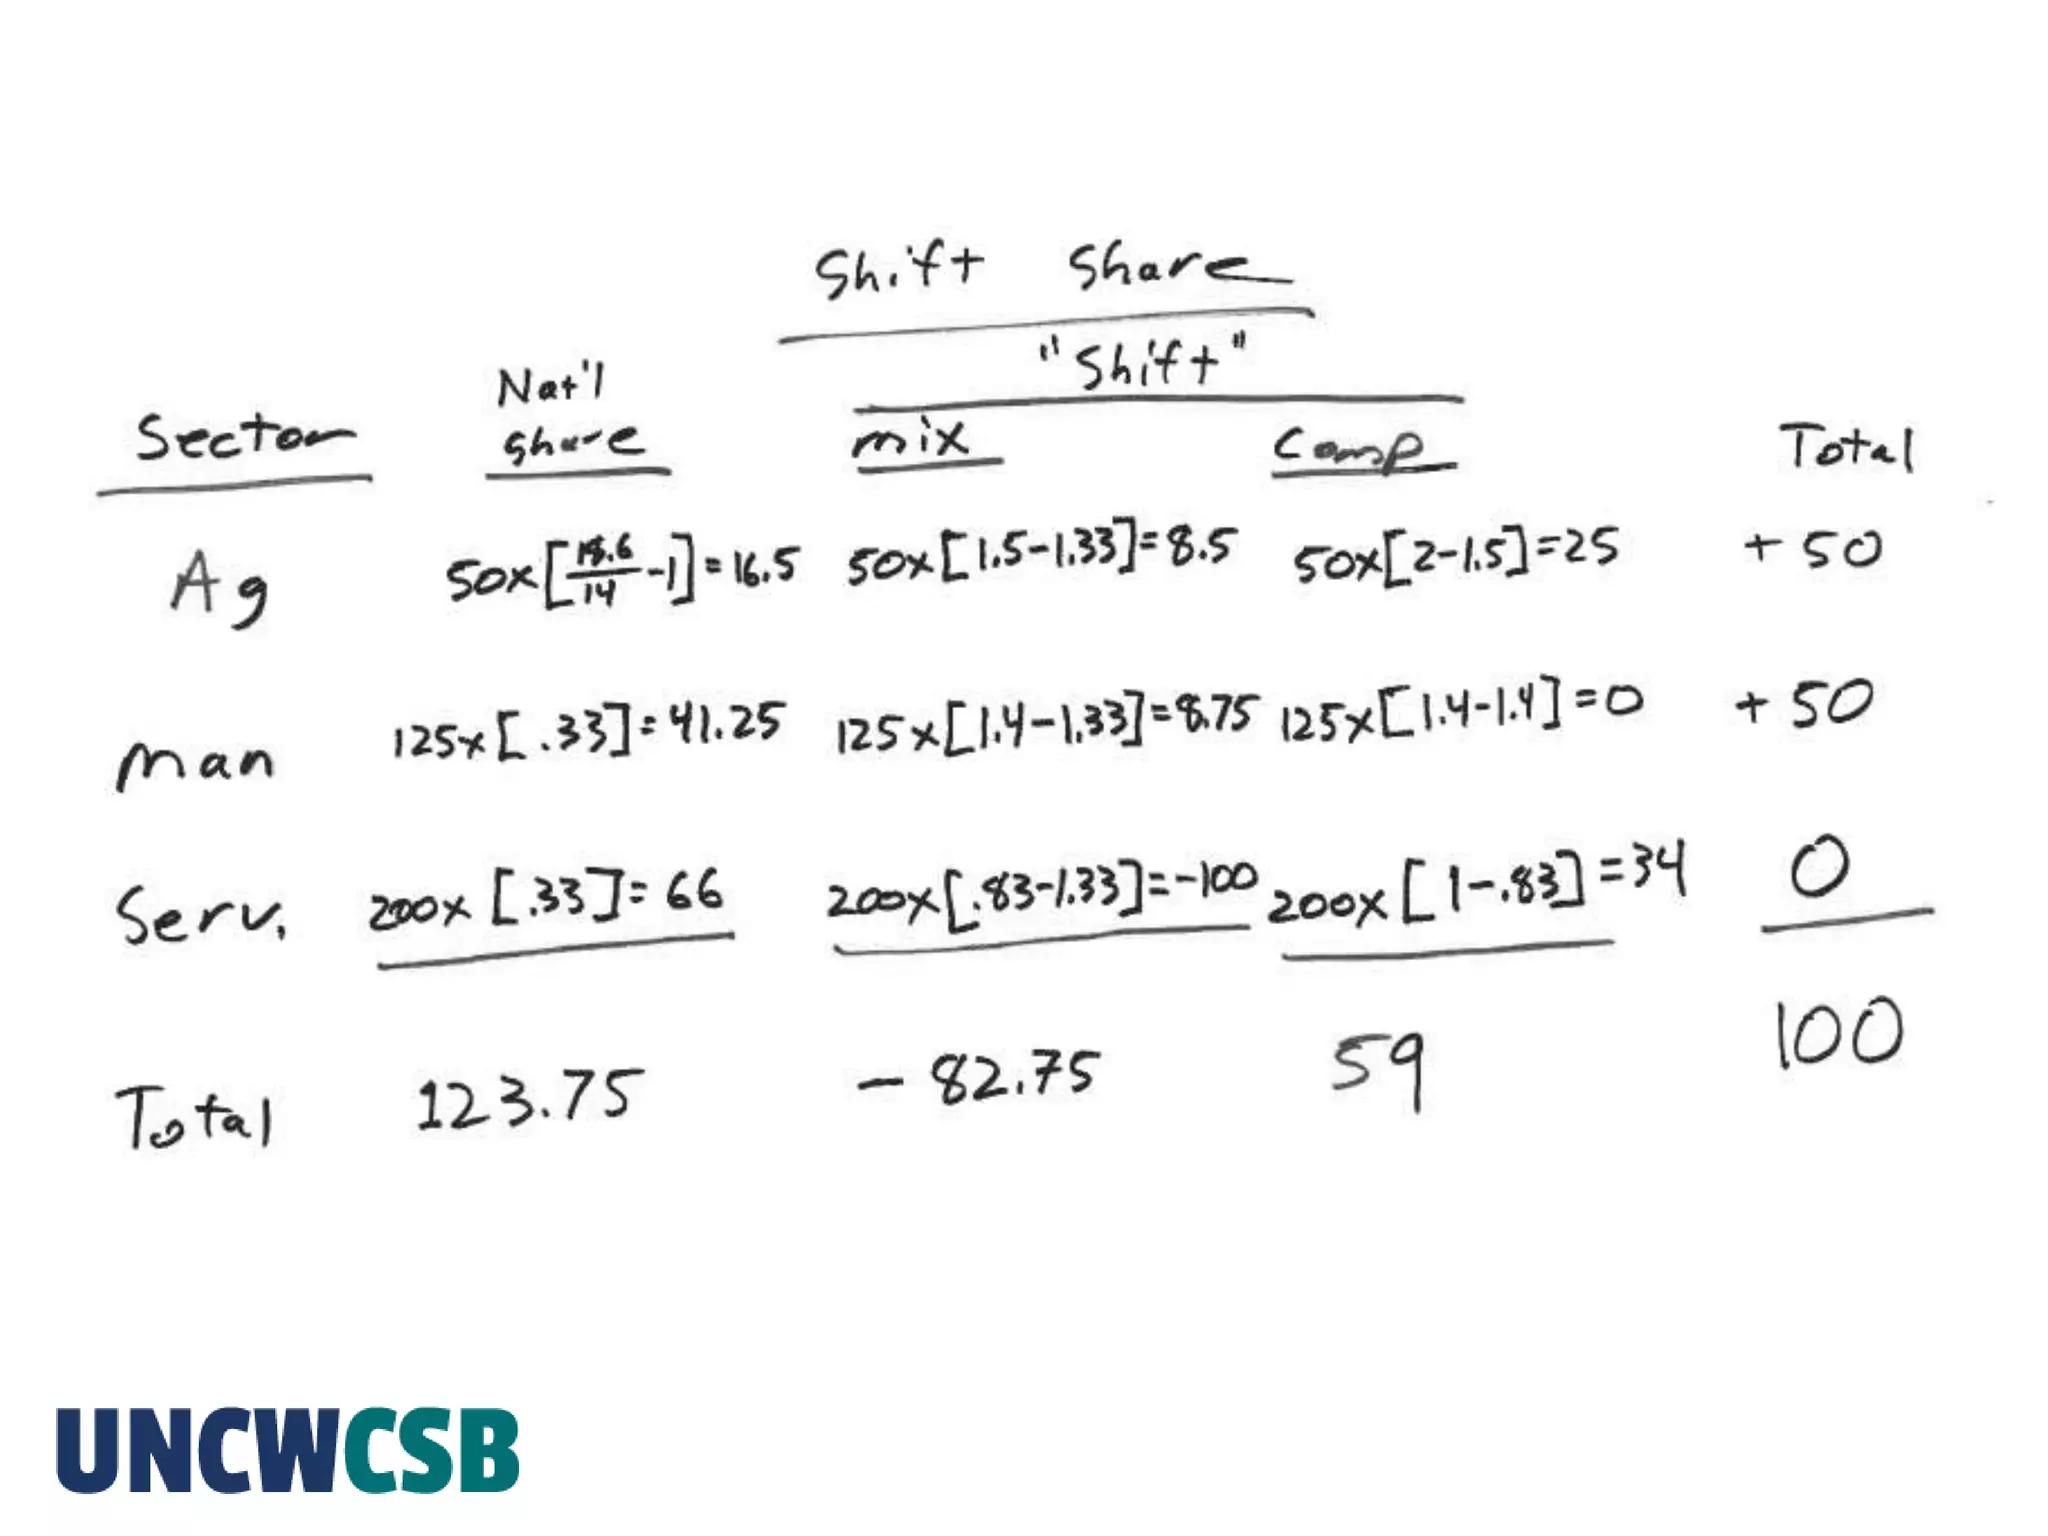 Shift Share
"Shift"
Sector Nat'l share mix Comp Total
Ag 50x[18.6/14 -1]=16.5 50x[1.5-1.33]=8.5 50x[2-1.5]=25 +50
Man 125x[.33]=41.25 125x[1.4-1.33]=8.75 125x[1.4-1.4]=0 +50
Serv. 200x[.33]=66 200x[.83-1.33]=-100 200x[1-.83]=34 0
Total 123.75 -82.75 59 100
UNCWCSB